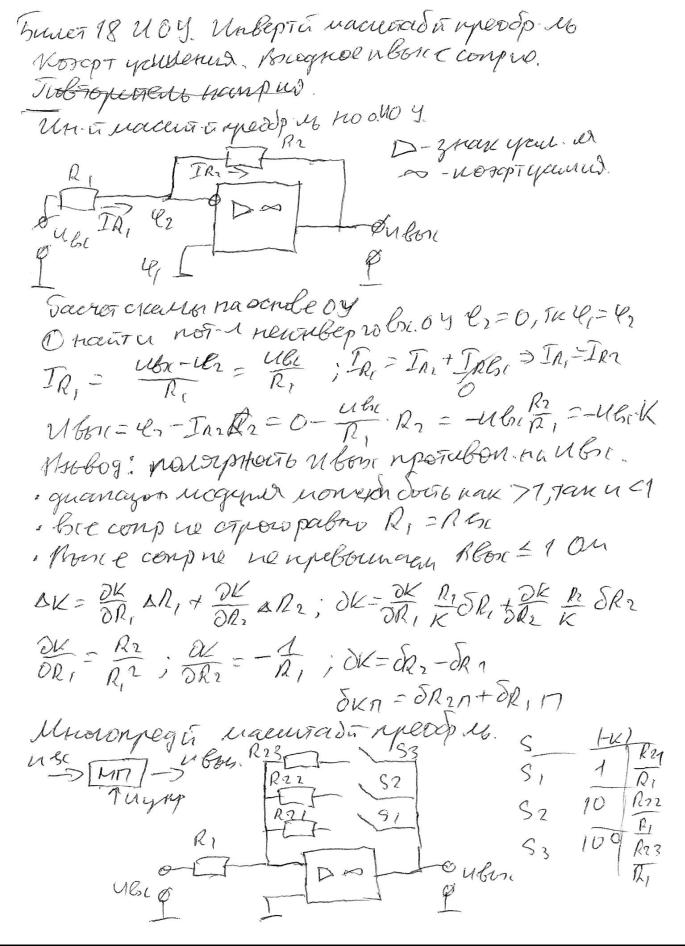 Билет 18 ИОУ. Инверт-й масштаб-й преобр-ль
Коэфт усиления. Входное и вых-е сопр-ю.
Повторитель напря.
Ин-й масшт-й преобр-ль на ОУ.
R2
▷ - знак усил-я
∞ - коэфт усиления.
R1
IR2 →
IR1
φ2
▷ ∞
Uвх
Uвых
φ1
Расчет схемы на основе ОУ
① найти пот-л неинвертов вх. ОУ φ2 = 0, тк φ1 = φ2
IR1 = (Uвх - φ2)/R1 = Uвх/R1 ; IR1 = IR2 + IRвх ⇒ IR1 = IR2
0
Uвых = φ2 - IR2 R2 = 0 - Uвх/R1 · R2 = -Uвх R2/R1 = -Uвх·K
Вывод: полярность Uвых противоп-на Uвх.
· диапазон модуля может быть как >1, так и <1
· вх-е сопр-ие строго равно R1 = Rвх
· Вых-е сопр-ие не превышает Rвых ≤ 1 Ом
ΔK = ∂K/∂R1 ΔR1 + ∂K/∂R2 ΔR2 ; δK = ∂K/∂R1 R1/K δR1 + ∂K/∂R2 R2/K δR2
∂K/∂R1 = R2/R1² ; ∂K/∂R2 = -1/R1 ; δK = δR2 - δR1
δKп = δR2п + δR1п
Многопред-й масштаб-й преобр-ль.
Uвх → МП → Uвых.
↑ Uупр
R23 S3
R22 S2
R21 S1
R1
▷ ∞
Uвх
Uвых
S (-K)
S1 1 R21/R1
S2 10 R22/R1
S3 100 R23/R1